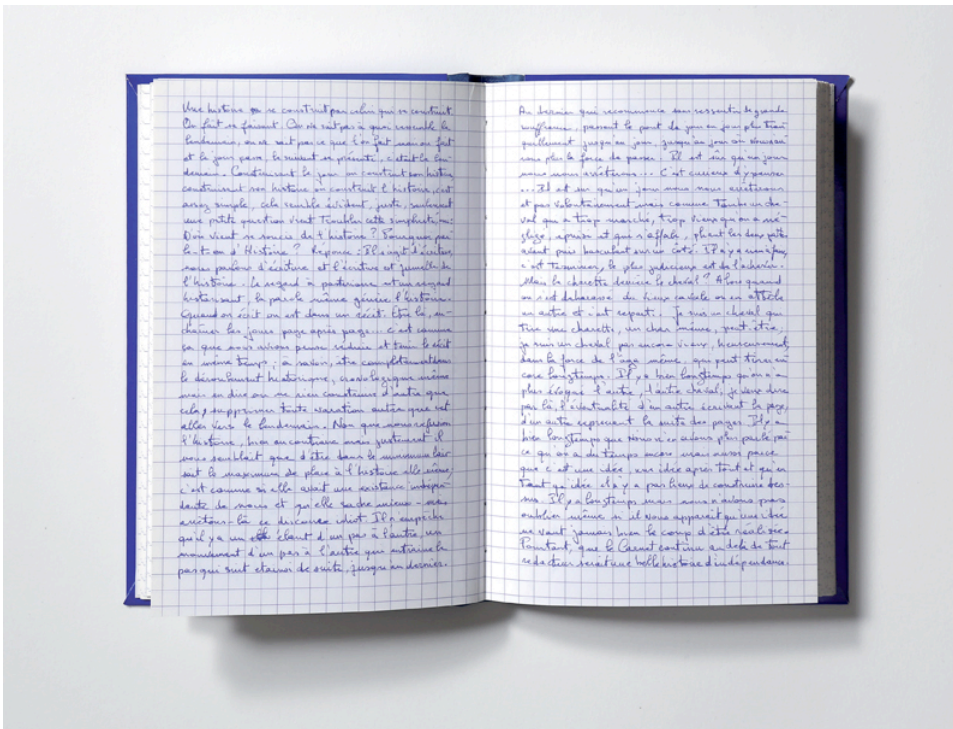 Une histoire se construit par celui qui se construit.
On fait se faisant. On ne sait pas à quoi ressemble le
lendemain, on ne sait pas ce que l'on fait mais on fait
et le jour passe, le suivant se présente, c'était le len-
demain. Construisant le jour on construit son histoire,
construisant son histoire on construit l'histoire, c'est
assez simple, cela semble évident, juste, seulement
une petite question vient troubler cette simplicité :
D'où vient ce soucie de l'histoire ? Pourquoi par
le-t-on d'Histoire ? Réponse : Il s'agit d'écriture,
nous parlons d'écriture et l'écriture est jumelle de
l'histoire. Le regard à posteriori est un regard
historisant, la parole même génère l'histoire.
Quand on écrit on est dans un récit. Être là, en-
chaîner les jours page après page... c'est comme
ça que nous avons pensé réduire et tenir le récit
en même temps ; à savoir, être complètement dans
le déroulement historique, chronologique même
mais en dire on ne rien construire d'autre que
cela, supprimer toute narration autre que cet
aller vers le lendemain. Non que nous refusions
l'histoire, bien au contraire mais justement il
nous semblait que d'être dans le minimum lais-
sait le maximum de place à l'histoire elle-même,
c'est comme si elle avait une existence indépen-
dante de nous et qu'elle sache mieux - mais
arrêtons-là ce discours idiot. Il n'empêche
qu'il y a un élant d'un pas à l'autre, un
mouvement d'un pas à l'autre qui entraîne le
pas qui suit et ainsi de suite, jusqu'au dernier.
Au dernier qui recommence sans ressentir de grande
souffrance, passant le pont de jour en jour plus tran
quillement jusqu'au jour, jusqu'au jour où nous n'au
rons plus la force de passer. Il est sûr qu'un jour
nous nous arrêterons... C'est curieux d'y penser
... Il est sûr qu'un jour nous nous arrêterons
et pas volontairement mais comme tombe un che-
val qui a trop marché, trop vieux qu'on a né-
gligé, épuisé et qui s'affale, pliant les deux pattes
avant puis basculant sur un côté. Il n'y a rien à faire,
c'est terminer, le plus judicieux est de l'achever.
Mais la charette derrière le cheval ? Alors quand
on s'est débarassé du vieux cadavre on en attèle
un autre et c'est reparti. Je suis un cheval qui
tire une charette, un char même, peut-être,
je suis un cheval pas encore vieux, heureusement,
dans la force de l'age même, qui peut tirer en
core longtemps. Il y a bien longtemps qu'on n'a
plus évoqué l'autre, l'autre cheval, je veux dire
par là, l'éventualité d'un autre écrivant la page,
d'un autre reprenant la suite des pages. Il y a
bien longtemps que nous n'en avions plus parlé par
ce qu'on a du temps encore mais aussi parce
que c'est une idée, une idée après tout et qu'en
tant qu'idée il n'y a pas lieu de construire des-
sus. Il y a longtemps mais nous n'avions pas
oublier même si il nous apparait qu'une idée
ne vaut jamais bien le coup d'être réalisée.
Pourtant, que le Carnet continue au delà de tout
rédacteur serait une belle histoire d'indépendance.